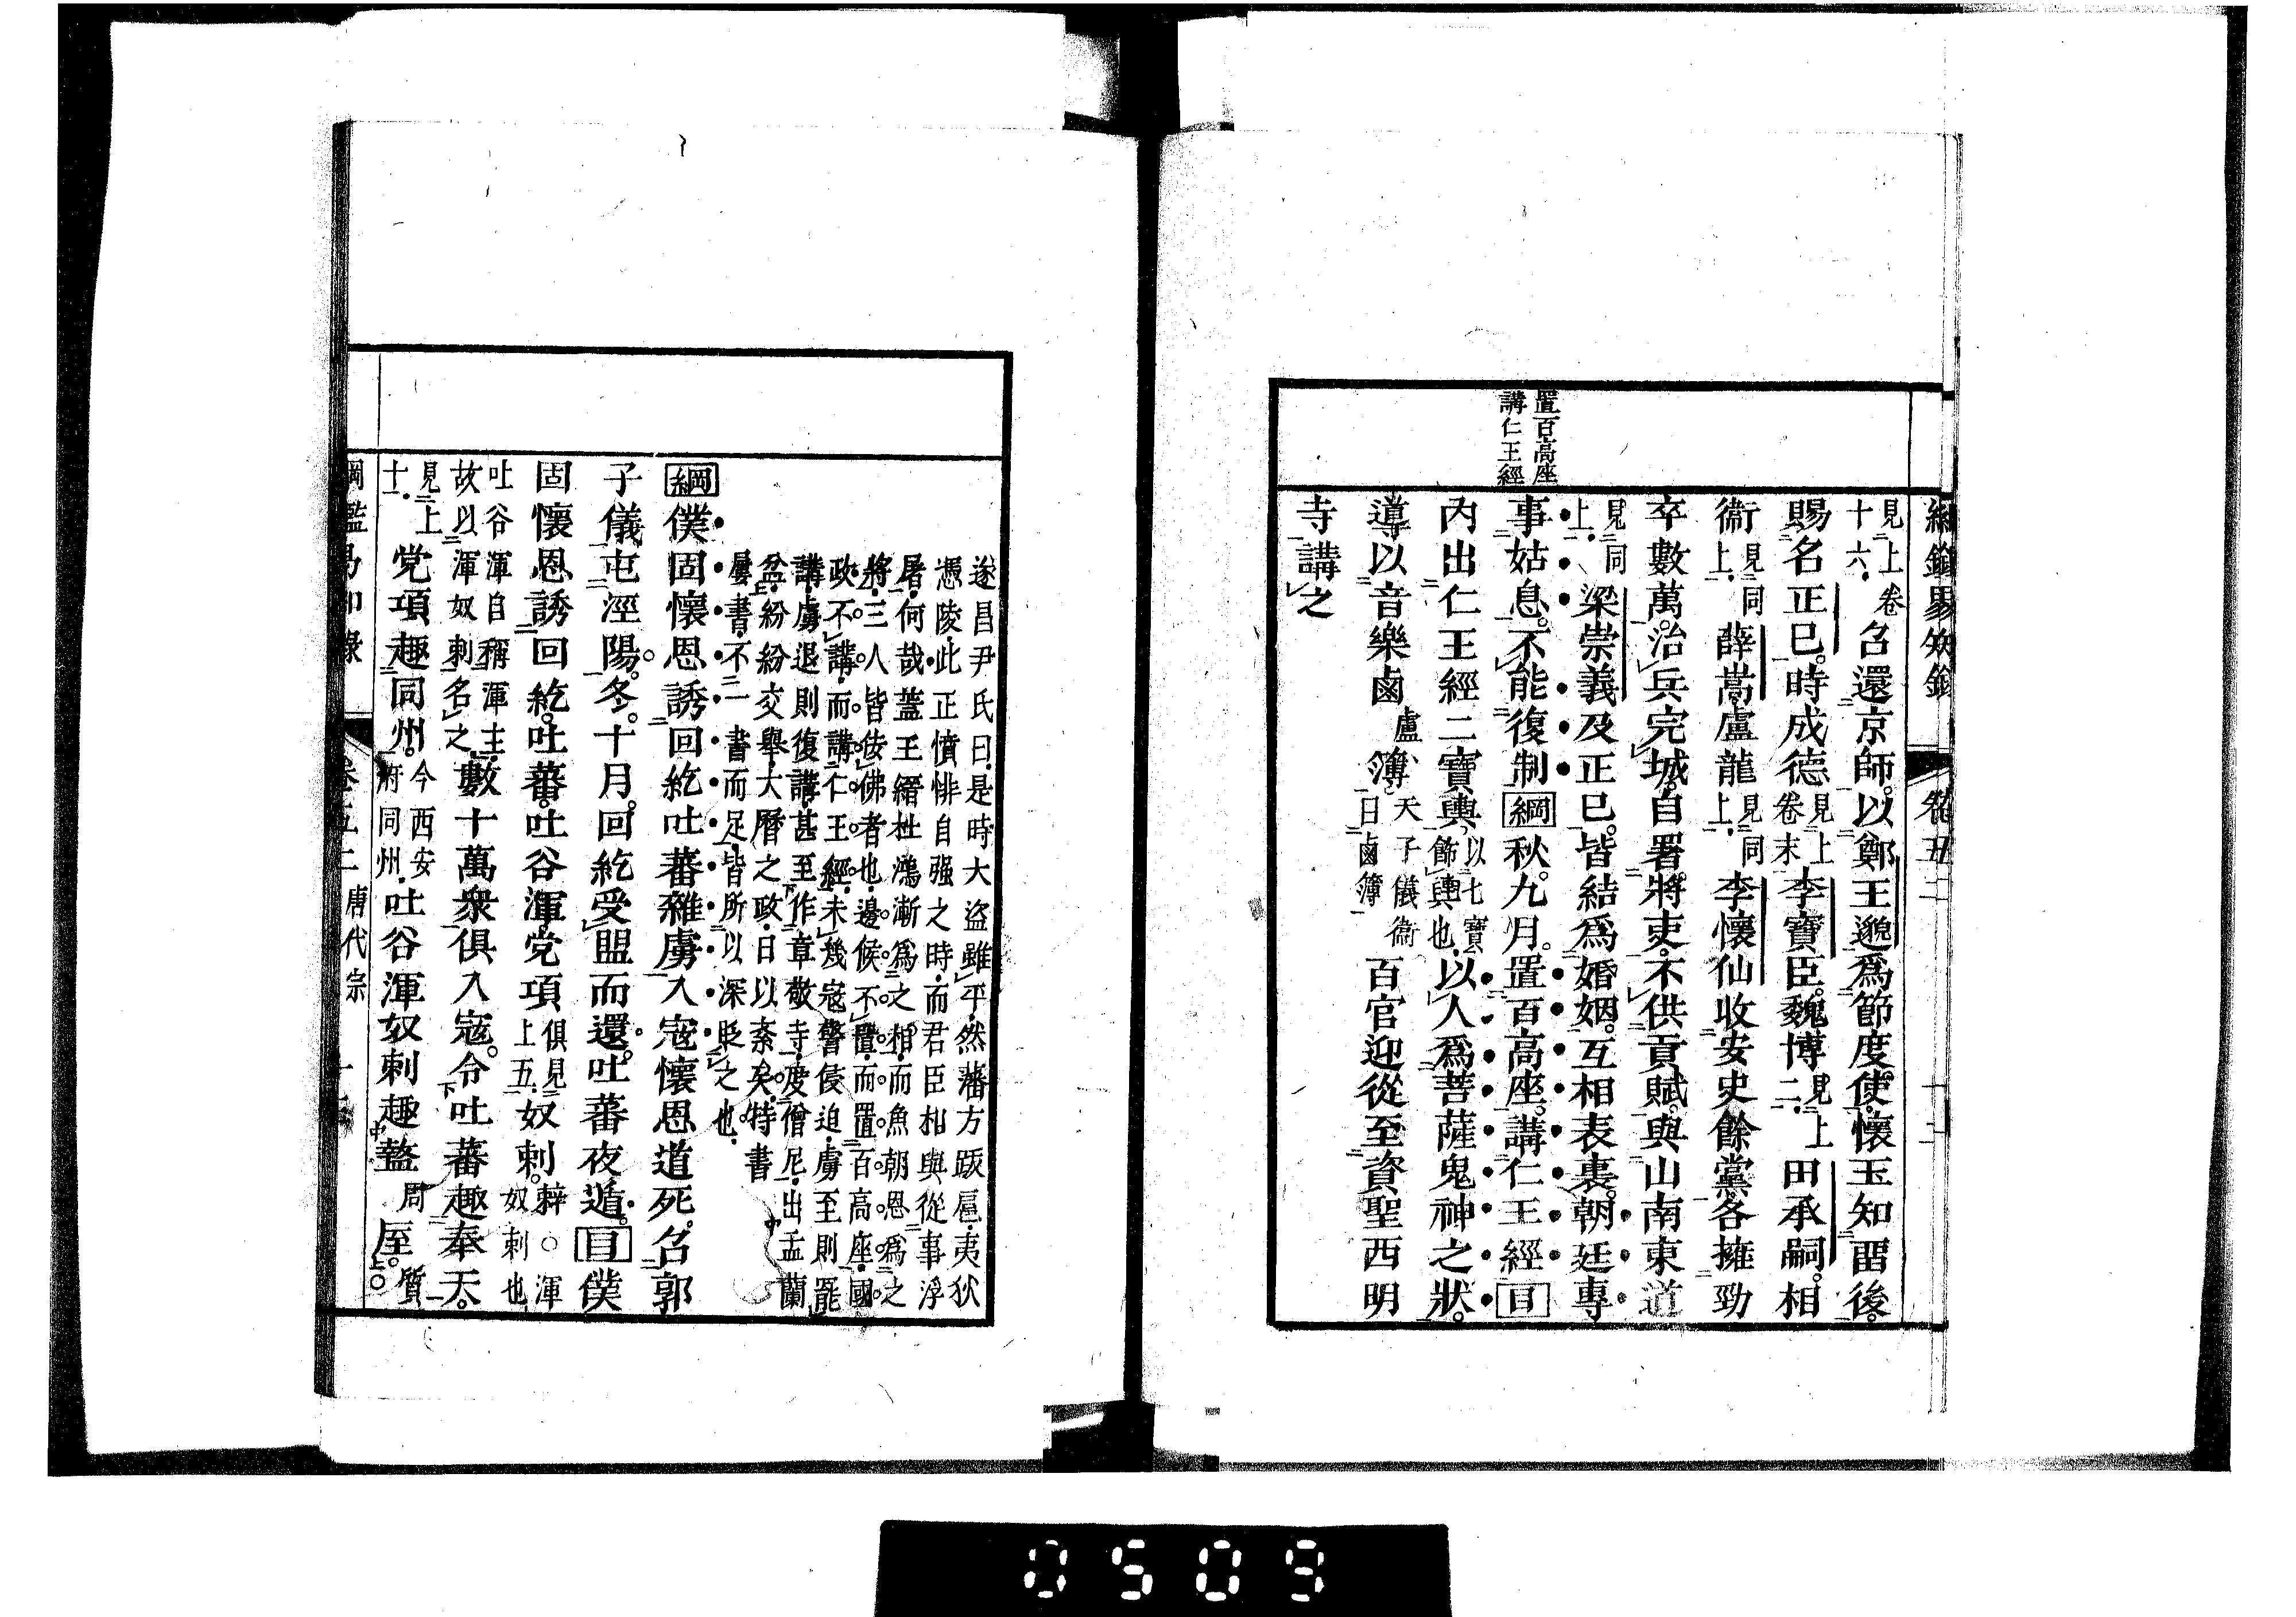 置百高座
講仁王經
綱鑑易知錄
卷五二
十二
見上卷
十六召還京師。以鄭王邈爲節度使。懷玉知畱後。
賜名正巳。時成德見上卷末李寶臣。魏博見上二田承嗣。相
衞見同上薛嵩。盧龍見同上李懷仙。收安史餘黨。各擁勁
卒數萬。治兵完城。自署將吏。不供貢賦。與山南東道
見同上梁崇義及正巳。皆結爲婚姻。互相表裏。朝廷專
事姑息。不能復制。綱秋。九月。置百高座。講仁王經。目
內出仁王經二寶輿。以七寶飾輿也以人爲菩薩鬼神之狀。
導以音樂鹵盧簿。天子儀衞曰鹵簿百官迎從。至資聖西明
寺講之
遂昌尹氏曰。是時大盜雖平。然藩方跋扈。夷狄
憑陵。此正憤悱自强之時。而君臣相與從事浮
屠。何哉。蓋王縉杜鴻漸爲之相。而魚朝恩爲之
將。三人皆佞佛者也。邊候不置。而置百高座。國
政不講。而講仁王經。未幾寇警侵迫。虜至則罷
講。虜退則復講。甚至作章敬寺。度僧尼。出盂蘭
盆。紛紛交舉。大曆之政。日以紊矣。特書
屢書。不一書而足。皆所以深貶之也。
綱僕固懷恩誘回紇吐蕃雜虜入寇。懷恩道死。召郭
子儀屯涇陽。冬。十月。回紇受盟而還。吐蕃夜遁。目僕
固懷恩誘回紇。吐蕃。吐谷渾。党項俱見上五奴剌。辣○渾奴剌也
吐谷渾自稱渾主。故以渾奴剌名之數十萬衆俱入寇。令吐蕃趣奉天。
見上十一党項趣同州。今西安府同州吐谷渾奴剌趣盩周厔。質○
綱鑑易知錄
卷五二
唐代宗
十二
0509